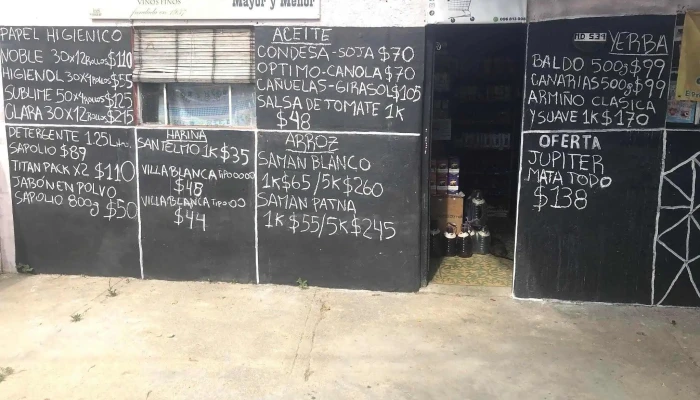 VINOS FINOS
Mayor y Menor
PAPEL HIGIENICO
NOBLE 30x12 ROLLOS $110
HIGIENOL 30x4 ROLLOS $55
SUBLIME 50x4 ROLLOS $125
CLARA 30x12 ROLLOS $215
DETERGENTE 1.25L
SAPOLIO $89
TITAN PACK x2 $110
JABON EN POLVO
SAPOLIO 800g $50
HARINA
SANTELMO 1K $35
VILLA BLANCA TIPO 0000
$48
VILLA BLANCA TIPO 00
$44
ACEITE
CONDESA-SOJA $70
OPTIMO-CANOLA $70
CAÑUELAS-GIRASOL $105
SALSA DE TOMATE 1K
$48
ARROZ
SAMAN BLANCO
1K $65/5K $260
SAMAN PATNA
1K $55/5K $245
YERBA
BALDO 500g $99
CANARIAS 500g $99
ARMIÑO CLASICA
Y SUAVE 1K $170
OFERTA
JUPITER
MATA TODO
$138